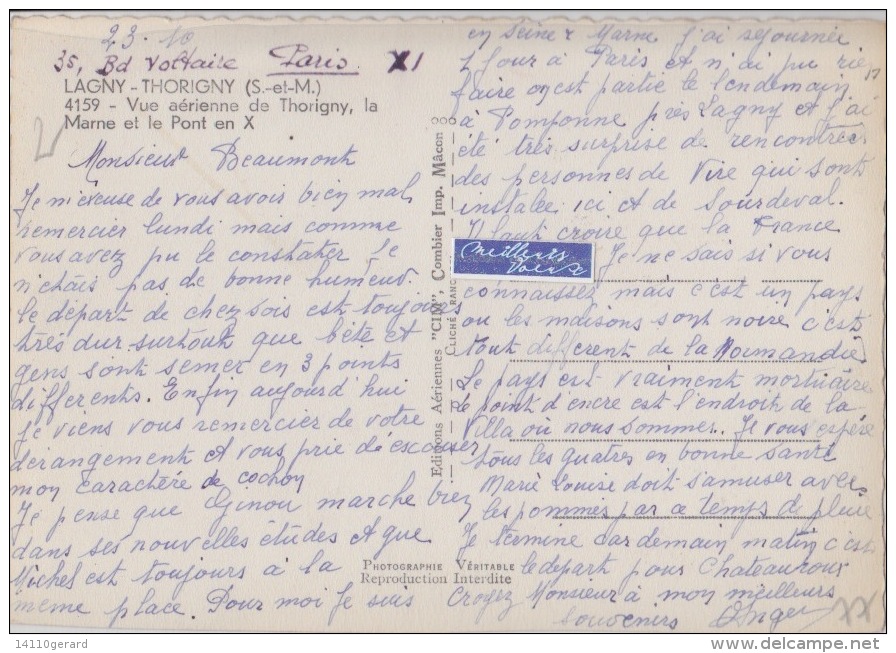 23.10
35, Bd Voltaire Paris XI
LAGNY-THORIGNY (S.-et-M.)
4159 - Vue aérienne de Thorigny, la
Marne et le Pont en X
Monsieur Beaumont
Je m'excuse de vous avois bien mal
remercier lundi mais comme
vous avez pu le constater je
n'étais pas de bonne humeur.
le départ de chez sois est toujours
très dur surtout que bête et
gens sont semer en 3 points
differents. Enfin aujourd'hui
je viens vous remercier de votre
derangement et vous prie d'escouser
mon caractère de cochon
Je pense que Ginou marche bien
dans ses nouvelles études et que
Michel est toujours à la
même place. Pour moi je suis
Editions Aériennes "CIM", Combier Imp. Mâcon
CLICHÉ RANC
en Seine & Marne j'ai séjournée
1 jour à Paris et n'ai pu rien
faire on est partie le lendemain
à Pomponne près Lagny et j'ai
été très surprise de rencontrer
des personnes de Vire qui sont
instalée ici et de Sourdeval.
Il faut croire que la France
Meilleurs
Voeux
Je ne sais si vous
connaissez mais c'est un pays
ou les maisons sont noire c'est
tout different de la Normandie
Le pays est vraiment mortuaire
le point d'encre est l'endroit de la
villa où nous sommes. Je vous espère
tous les quatres en bonne santé
Marie Louise doit s'amuser avec
les pommes par ce temps de pluie
Je termine car demain matin c'est
le départ pour Chateauroux
Croyez Monsieur à mon meilleurs
souvenirs
PHOTOGRAPHIE VÉRITABLE
Reproduction Interdite
XX
14110gerard
delcampe.net